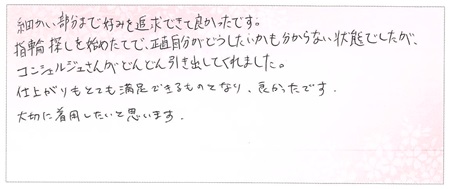 細かい部分まで好みを追求できて良かったです。
指輪探しを始めたてで、正直自分がどうしたいかも分からない状態でしたが、
コンシェルジュさんがどんどん引き出してくれました。
仕上がりもとても満足できるものとなり、良かったです.
大切に着用したいと思います.